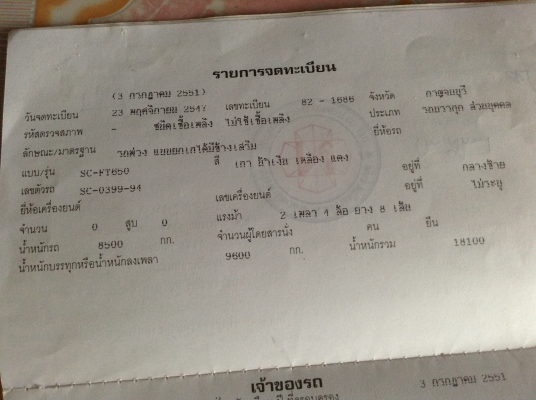 รายการจดทะเบียน
(3 กรกฎาคม 2551)
วันจดทะเบียน 23 พฤศจิกายน 2547 เลขทะเบียน 82 - 1686 จังหวัด กาญจนบุรี
รหัสตรวจสภาพ - ชนิดเชื้อเพลิง ไม่ใช้เชื้อเพลิง ประเภท รถบรรทุก ส่วนบุคคล
ลักษณะ/มาตรฐาน รถพ่วง แบบยกเทได้มีข้างเสริม ยี่ห้อรถ
แบบ/รุ่น SC-FT650 สี เทา น้ำเงิน เหลือง แดง
เลขตัวรถ SC-0399-94 อยู่ที่ กลางซ้าย
ยี่ห้อเครื่องยนต์ เลขเครื่องยนต์ อยู่ที่ ไม่ระบุ
จำนวน 0 สูบ 0 แรงม้า 2 เพลา 4 ล้อ ยาง 8 เส้น
น้ำหนักรถ 8500 กก. จำนวนผู้โดยสารนั่ง คน ยืน
น้ำหนักบรรทุกหรือน้ำหนักลงเพลา 9600 กก. น้ำหนักรวม 18100
เจ้าของรถ 3 กรกฎาคม 2551